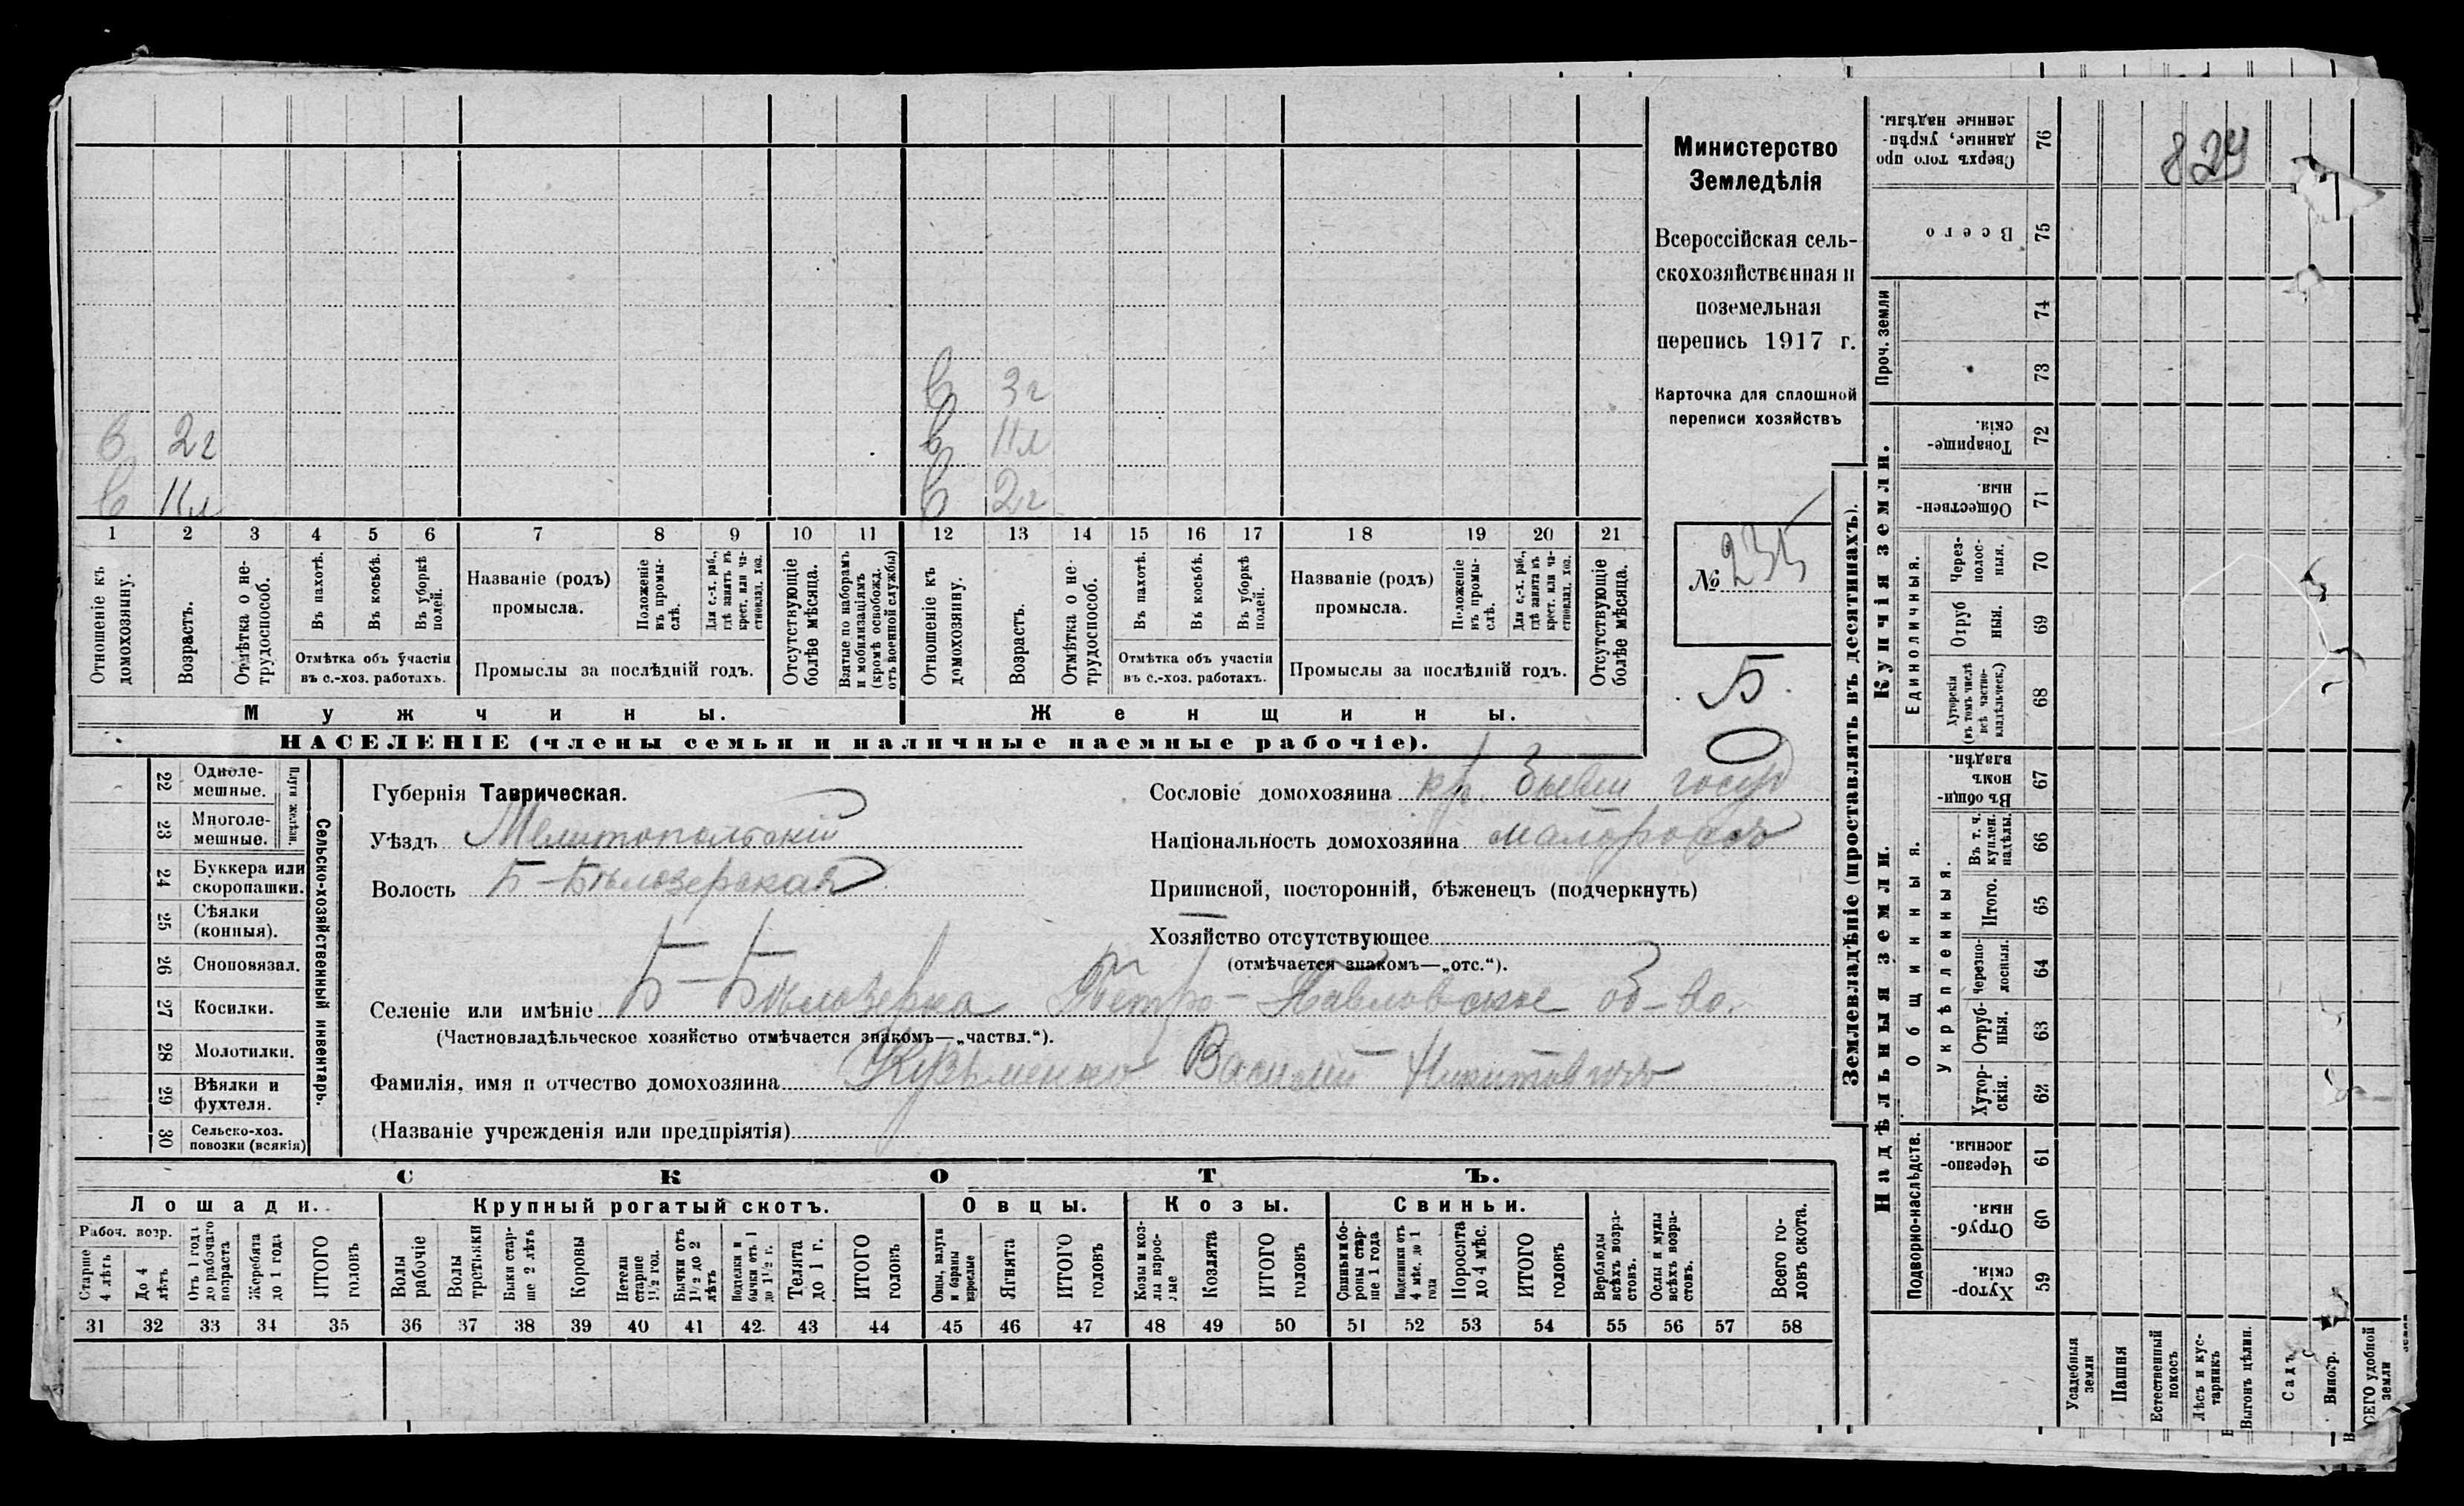 829
Министерство
Земледѣлія
Всероссійская сель-
скохозяйственная и
поземельная
перепись 1917 г.
Карточка для сплошной
переписи хозяйствъ
№ 235
Б.
в 3 г
в 2 г в 11 л
в 11 л в 2 г
1 2 3 4 5 6 7 8 9 10 11 12 13 14 15 16 17 18 19 20 21
Отношеніе къ домохозяину.
Возрастъ.
Отмѣтка о не-трудоспособ.
Въ пахотѣ.
Въ косьбѣ.
Въ уборкѣ полей.
Отмѣтка объ участіи
въ с.-хоз. работахъ.
Названіе (родъ)
промысла.
Положеніе въ промы-слѣ.
Для с.-х. раб., гдѣ занятъ въ крест. или ча-стновлад. хоз.
Промыслы за послѣдній годъ.
Отсутствующіе болѣе мѣсяца.
Взятые по наборамъ и мобилизаціямъ (кромѣ освобожд. отъ военной службы)
Отношеніе къ домохозяину.
Возрастъ.
Отмѣтка о не-трудоспособ.
Въ пахотѣ.
Въ косьбѣ.
Въ уборкѣ полей.
Отмѣтка объ участіи
въ с.-хоз. работахъ.
Названіе (родъ)
промысла.
Положеніе въ промы-слѣ.
Для с.-х. раб., гдѣ занята въ крест. или ча-стновлад. хоз.
Промыслы за послѣдній годъ.
Отсутствующіе болѣе мѣсяца.
Мужчины. Женщины.
НАСЕЛЕНІЕ (члены семьи и наличные наемные рабочіе).
22 Одноле-мешные.
23 Многоле-мешные.
Плуги желѣзн.
24 Буккера или скоропашки.
25 Сѣялки (конныя).
26 Сноповязал.
27 Косилки.
28 Молотилки.
29 Вѣялки и фухтеля.
30 Сельско-хоз. повозки (всякія)
Сельско-хозяйственный инвентарь.
Губернія Таврическая.
Уѣздъ Мелитопольскій
Волость Б-Бѣлозерская
Сословіе домохозяина кр. бывш госуд
Національность домохозяина малороссъ
Приписной, посторонній, бѣженецъ (подчеркнуть)
Хозяйство отсутствующее
(отмѣчается знакомъ—„отс.“).
Селеніе или имѣніе Б-Бѣлозерка Петро-Павловское об-во.
(Частновладѣльческое хозяйство отмѣчается знакомъ—„частвл.“).
Фамилія, имя и отчество домохозяина Кузьменко Василій Никитовичъ
(Названіе учрежденія или предпріятія)
СКОТЪ.
Лошади. Крупный рогатый скотъ. Овцы. Козы. Свиньи.
Рабоч. возр.
Старше 4 лѣтъ
До 4 лѣтъ
Отъ 1 года до рабочаго возраста
Жеребята до 1 года
ИТОГО головъ
Волы рабочіе
Волы третьяки
Быки стар-ше 2 лѣтъ
Коровы
Нетели старше 1½ год.
Бычки отъ 1½ до 2 лѣтъ
Подтелки и бычки отъ 1 до 1½ г.
Телята до 1 г.
ИТОГО головъ
Овцы, валухи и бараны взрослые
Ягнята
ИТОГО головъ
Козы и коз-лы взрос-лые
Козлята
ИТОГО головъ
Свиньи бо-ровы стар-ше 1 года
Подсвинки отъ 4 мѣс. до 1 года
Поросята до 4 мѣс.
ИТОГО головъ
Верблюды всѣхъ возра-стовъ.
Ослы и мулы всѣхъ возра-стовъ.
Всего го-ловъ скота.
31 32 33 34 35 36 37 38 39 40 41 42. 43 44 45 46 47 48 49 50 51 52 53 54 55 56 57 58
Землевладѣніе (проставлять въ десятинахъ).
Купчія земли.
Надѣльныя земли.
Сверхъ того про данные, укрѣп-ленные надѣлы. 76
Всего 75
Проч. земли 74
73
Товарище-скія. 72
Обществен-ныя. 71
Единоличныя.
Через-полос-ныя. 70
Отруб ныя. 69
Хуторскія (въ томъ числѣ всѣ частно-владѣльческ.) 68
Общинныя.
Въ общи номъ владѣн. 67
Укрѣпленныя.
Въ т. ч. куплен. надѣлы. 66
Итого. 65
Черезпо-лосныя. 64
Отруб-ныя. 63
Хутор-скія. 62
Подворно-наслѣдств.
Черезпо-лосныя. 61
Отруб-ныя. 60
Хутор-скія. 59
Усадебныя земли
Пашня
Естественный покосъ
Лѣсъ и кус-тарникъ
Выгонъ цѣлин.
Садъ
Виногр.
СЕГО удобной земли